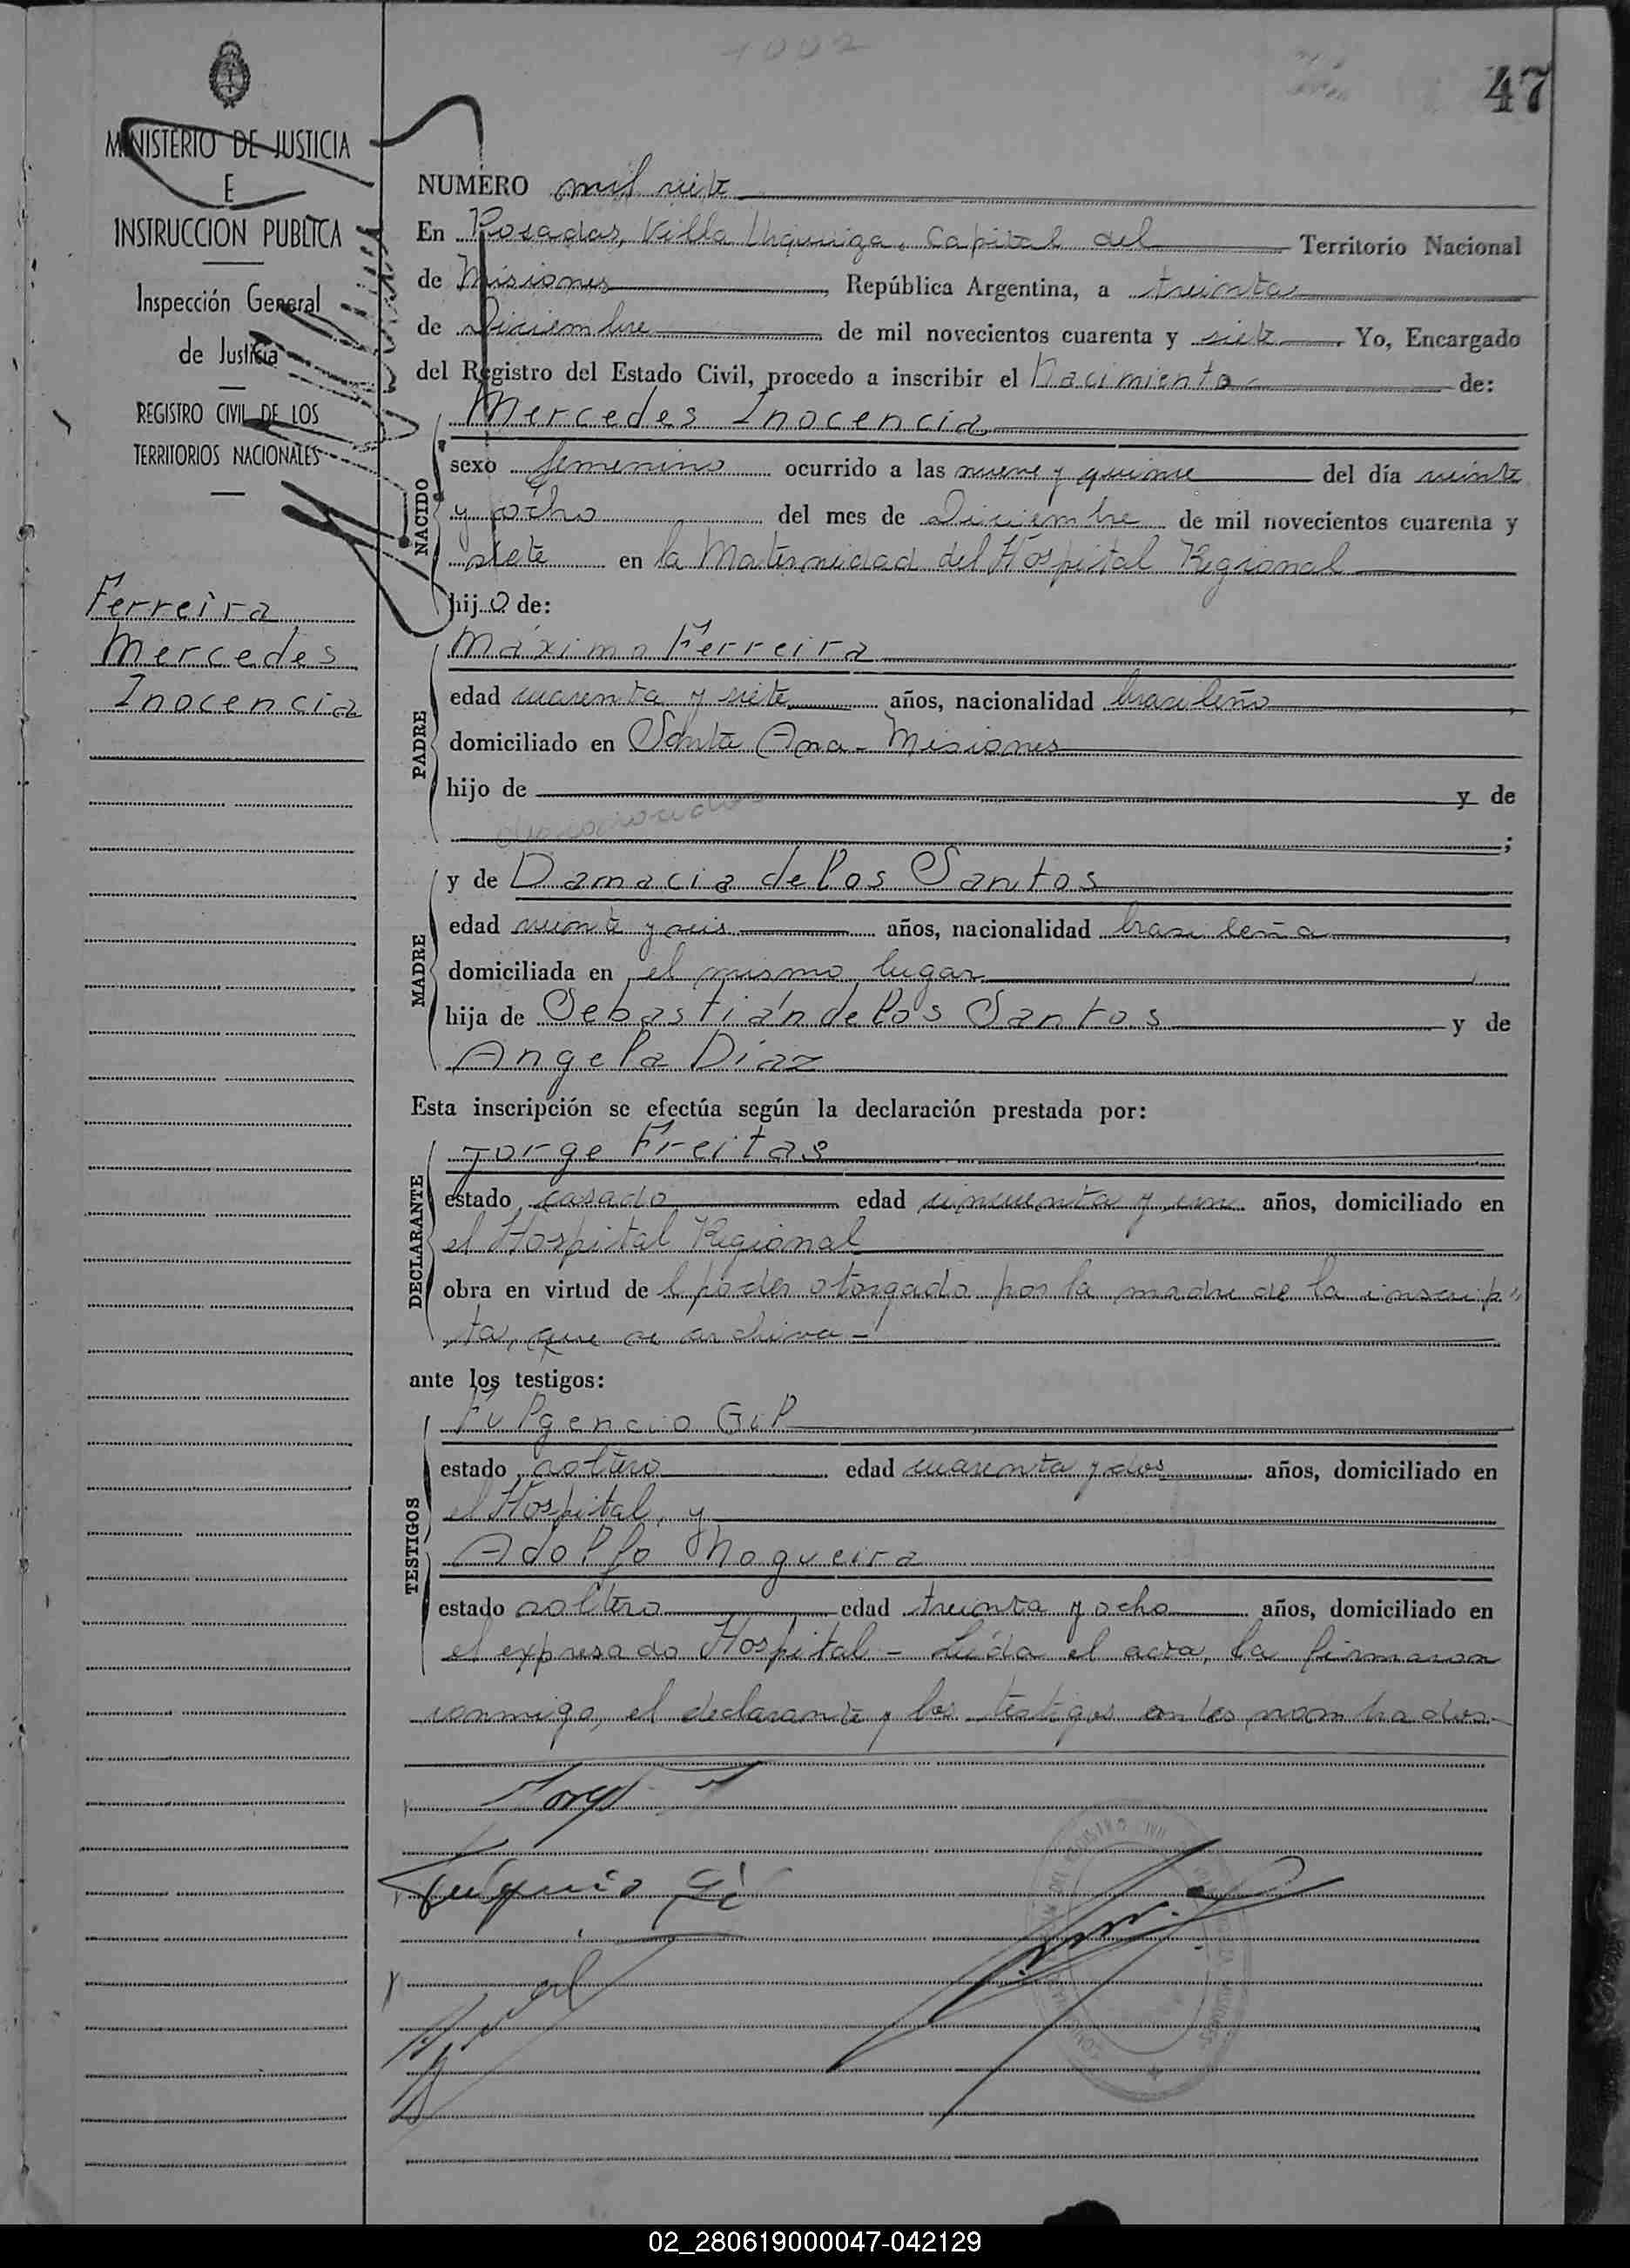 47
MINISTERIO DE JUSTICIA
E
INSTRUCCION PUBLICA
Inspección General
de Justicia
REGISTRO CIVIL DE LOS
TERRITORIOS NACIONALES
Ferreira
Mercedes
Inocencia
NUMERO mil siete
En Posadas, Villa Urquiza, Capital del Territorio Nacional
de Misiones, República Argentina, a treinta
de Diciembre de mil novecientos cuarenta y siete. Yo, Encargado
del Registro del Estado Civil, procedo a inscribir el Nacimiento de:
NACIDO
Mercedes Inocencia
sexo femenino ocurrido a las nueve y quince del día veinte
y ocho del mes de Diciembre de mil novecientos cuarenta y
siete en la Maternidad del Hospital Regional
hij a de:
PADRE
Máximo Ferreira
edad cuarenta y siete años, nacionalidad brasileño,
domiciliado en Santa Ana - Misiones
hijo de y de
;
MADRE
y de Damacia de los Santos
edad veinte y seis años, nacionalidad brasileña,
domiciliada en el mismo lugar
hija de Sebastián de los Santos y de
Angela Díaz
Esta inscripción se efectúa según la declaración prestada por:
DECLARANTE
Jorge Freitas
estado casado edad cincuenta y un años, domiciliado en
el Hospital Regional
obra en virtud de l poder otorgado por la madre de la inscrip"
ta, que se archiva -
ante los testigos:
TESTIGOS
Fulgencio Gil
estado soltero edad cuarenta y dos años, domiciliado en
el Hospital, y
Adolfo Nogueira
estado soltero edad treinta y ocho años, domiciliado en
el expresado Hospital - Leída el acta, la firmaron
conmigo, el declarante y los testigos antes nombrados -
02_280619000047-042129